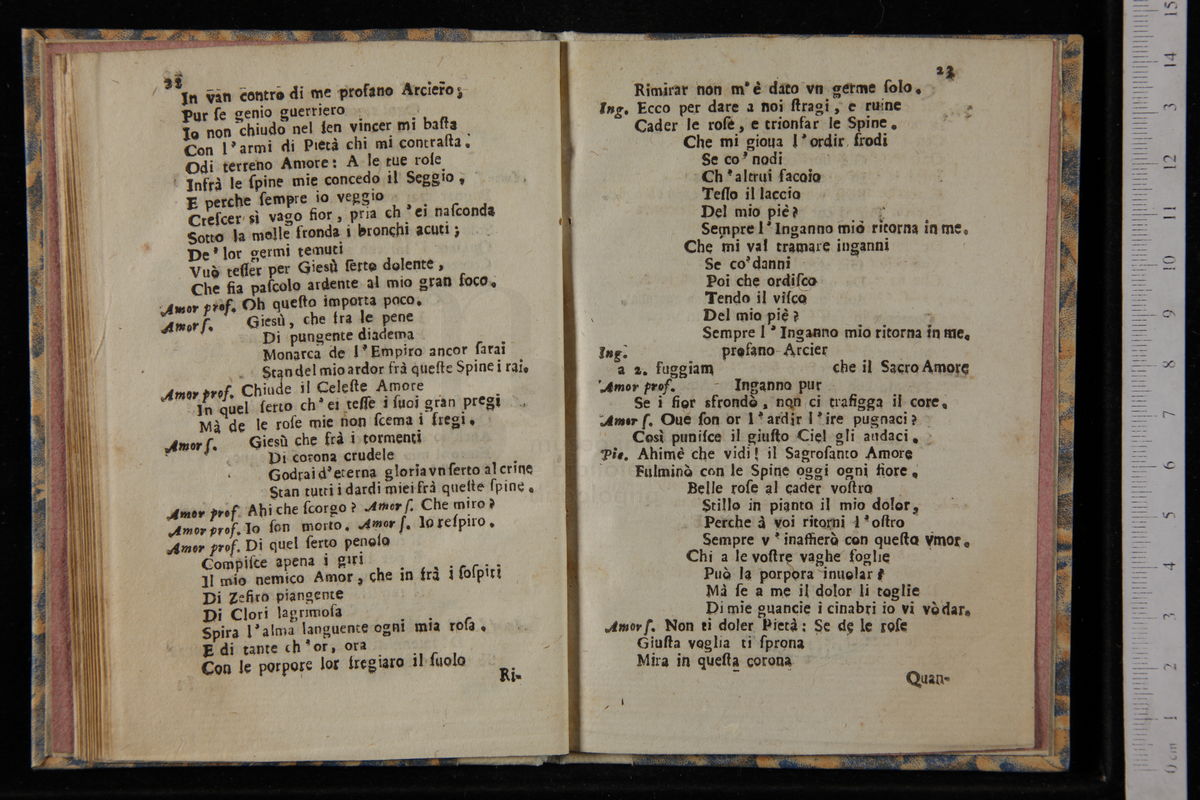 22
In van contro di me profano Arciero;
Pur ſe genio guerriero
Io non chiudo nel ſen vincer mi baſta
Con l'armi di Pietà chi mi contraſta.
Odi terreno Amore: A le tue roſe
Infrà le ſpine mie concedo il Seggio,
E perche ſempre io veggio
Creſcer sì vago fior, pria ch'ei naſconda
Sotto la molle fronda i bronchi acuti;
De' lor germi temuti
Vuò teſſer per Giesù ſerto dolente,
Che ſia paſcolo ardente al mio gran foco.
Amor prof. Oh queſto importa poco.
Amor ſ. Giesù, che fra le pene
Di pungente diadema
Monarca de l'Empiro ancor ſarai
Stan del mio ardor frà queſte Spine i rai.
Amor prof. Chiude il Celeſte Amore
In quel ſerto ch'ei teſſe i ſuoi gran pregi
Mà de le roſe mie non ſcema i fregi.
Amor ſ. Giesù che frà i tormenti
Di corona crudele
Godrai d'eterna gloria vn ſerto al crine
Stan tutti i dardi miei frà queſte ſpine.
Amor prof Ahi che ſcorgo? Amor ſ. Che miro?
Amor prof. Io ſon morto. Amor ſ. Io reſpiro.
Amor prof. Di quel ſerto penoſo
Compiſce apena i giri
Il mio nemico Amor, che in frà i ſoſpiri
Di Zefiro piangente
Di Clori lagrimoſa
Spira l'alma languente ogni mia roſa.
E di tante ch'or, ora
Con le porpore lor fregiaro il ſuolo
Ri-
23
Rimirar non m'è dato vn germe ſolo.
Ing. Ecco per dare a noi ſtragi, e ruine
Cader le roſe, e trionfar le Spine.
Che mi gioua l'ordir frodi
Se co' nodi
Ch'altrui facoio
Teſſo il laccio
Del mio piè?
Sempre l'Inganno miò ritorna in me.
Che mi val tramare inganni
Se co'danni
Poi che ordiſco
Tendo il viſco
Del mio piè?
Sempre l'Inganno mio ritorna in me.
Ing. profano Arcier
a 2. fuggiam che il Sacro Amore
Amor prof. Inganno pur
Se i fior sfrondò, non ci trafigga il core.
Amor ſ. Oue ſon or l'ardir l'ire pugnaci?
Così puniſce il giuſto Ciel gli audaci.
Pie. Ahimè che vidi! il Sagroſanto Amore
Fulminò con le Spine oggi ogni fiore.
Belle roſe al cader voſtro
Stillo in pianto il mio dolor,
Perche à voi ritorni l'oſtro
Sempre v'inaffierò con queſto vmor.
Chi a le voſtre vaghe foglie
Può la porpora inuolar?
Mà ſe a me il dolor li toglie
Di mie guancie i cinabri io vi vò dar.
Amor ſ. Non ti doler Pietà: Se de le roſe
Giuſta voglia ti ſprona
Mira in queſta corona
Quan-